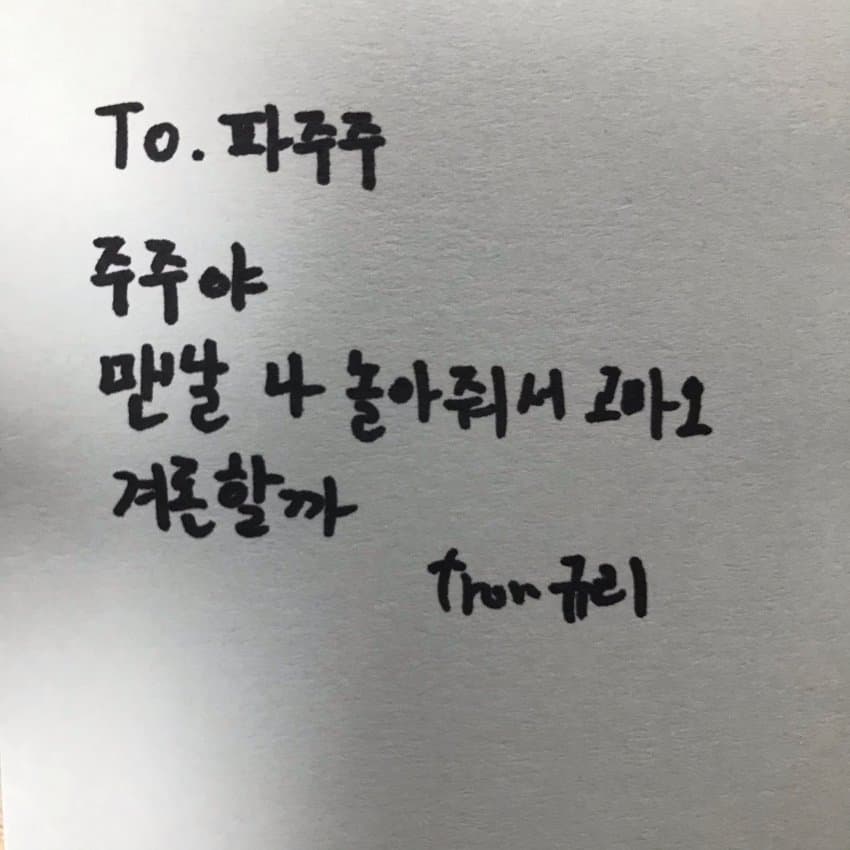 To. 파주주
주주야
맨날 나 놀아줘서 고마오
겨론할까
from 규리